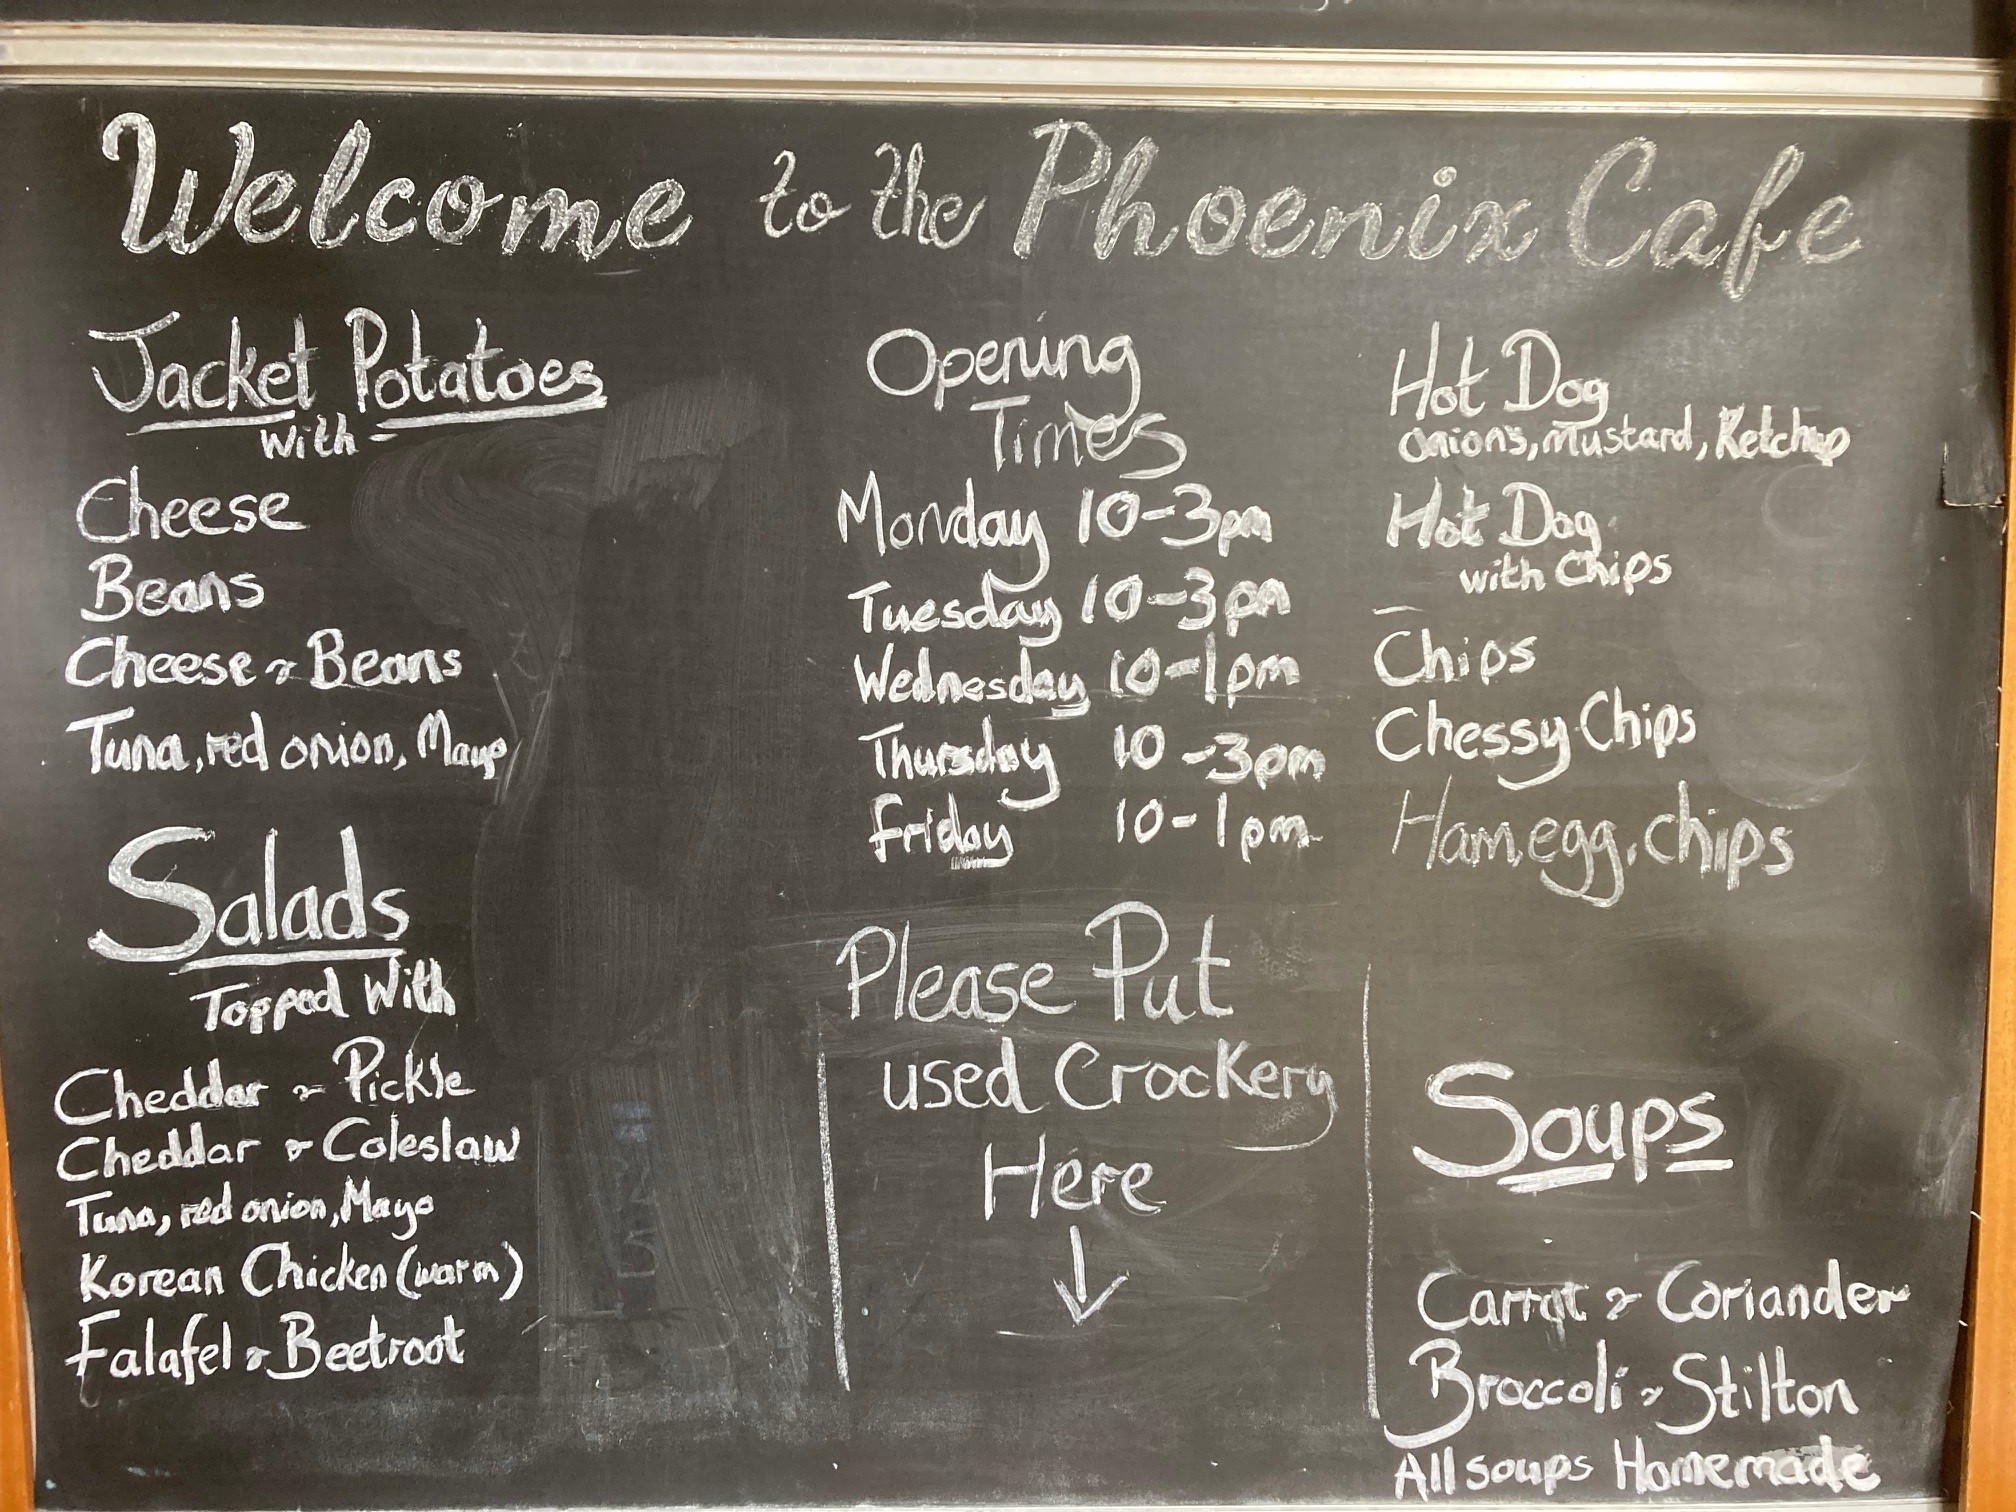 Welcome to the Phoenix Cafe
Jacket Potatoes
with -
Cheese
Beans
Cheese & Beans
Tuna, red onion, Mayo
Salads
Topped With
Cheddar & Pickle
Cheddar & Coleslaw
Tuna, red onion, Mayo
Korean Chicken (warm)
Falafel & Beetroot
Opening
Times
Monday 10-3pm
Tuesday 10-3pm
Wednesday 10-1pm
Thursday 10-3pm
Friday 10-1pm
Please Put
used Crockery
Here
↓
Hot Dog
onions, mustard, Ketchup
Hot Dog
with Chips
Chips
Chessy Chips
Ham, egg, chips
Soups
Carrot & Coriander
Broccoli & Stilton
All soups Homemade